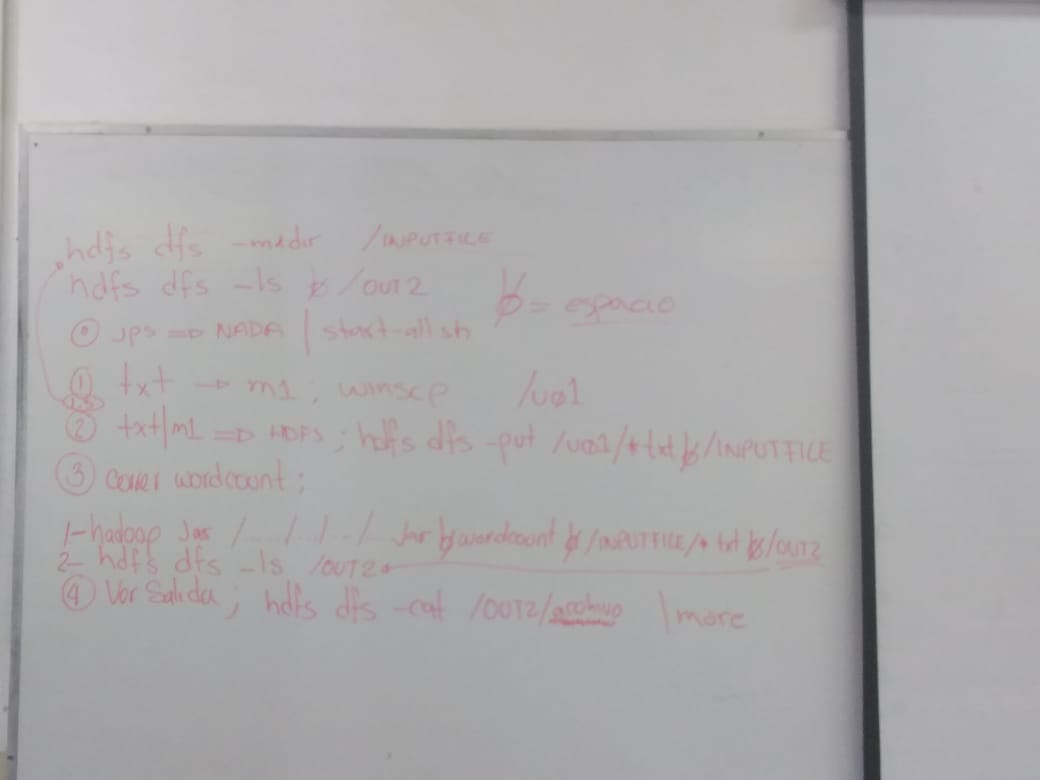 hdfs dfs -mkdir /INPUTFILE
hdfs dfs -ls ␢ /OUT2
␢ = espacio
⓪ JPS => NADA | start-all.sh
① txt → m1; winscp /u01
1.5
② txt|m1 => HDFS; hdfs dfs -put /u01/*txt ␢/INPUTFILE
③ Correr wordcount;
1- hadoop Jar /..../..../..../... Jar ␢ wordcount ␢ /INPUTFILE/*txt ␢/OUT2
2- hdfs dfs -ls /OUT2
④ Ver Salida; hdfs dfs -cat /OUT2/archivo | more